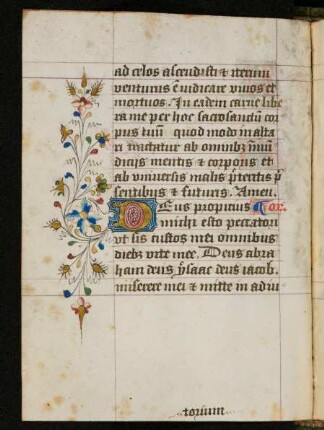 ad celos ascendisti & iterum
venturus es iudicare vivos et
mortuos. In eadem carne libe
ra me per hoc sacrosanctū cor
pus tuū quod modo in alta
ri tractatur ab omnibꝫ
mentis & corporis et
ab universis malis p̄teritis p̄
sentibus & futuris. Amen.
Deus propicius Or.
michi esto peccatori
ut sis custos mei omnibus
diebꝫ vite mee. Deus abra
ham deus ysaac deus iacob.
miserere mei & mitte in adiu
torium